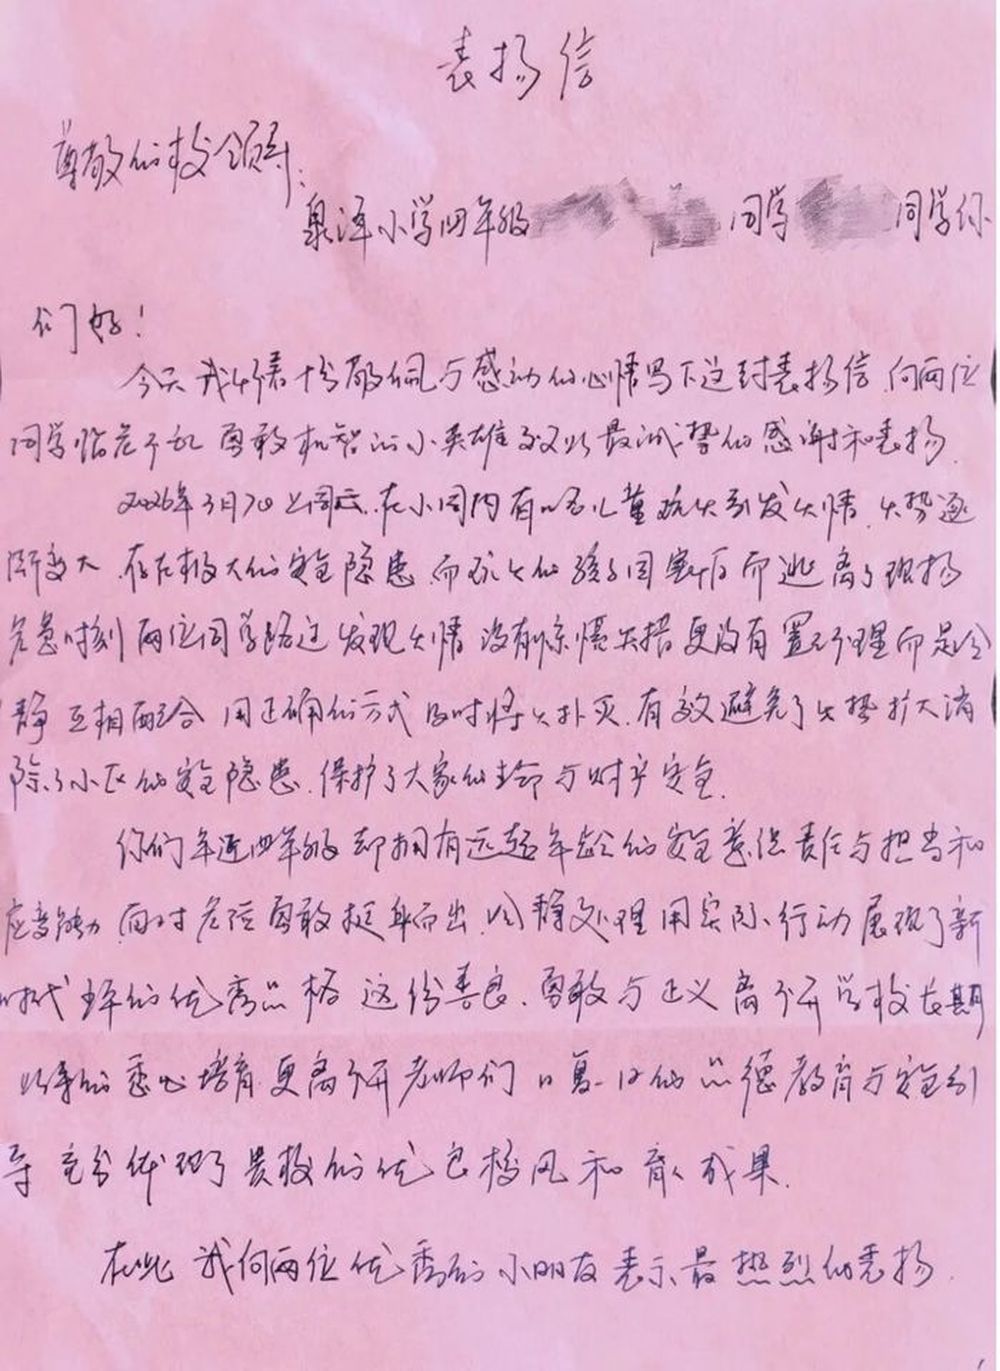 表扬信
尊敬的校领导：
泉泽小学四年级 同学 同学你
们好！
今天我怀着十分敬佩与感动的心情写下这封表扬信 向两位
同学临危不乱 勇敢机智的小英雄致以最诚挚的感谢和表扬.
2026年3月7日 在小 内有 儿童玩火引发火情 火势逐
渐变大 存在极大的安全隐患 而玩火的孩子因害怕而逃离了现场
危急时刻 两位同学路过发现火情 没有惊慌失措更没有置之不理而是冷
静 互相配合 用正确的方式及时将火扑灭.有效避免了火势扩大消
除了小区的安全隐患.保护了大家的生命与财产安全.
你们年近四年级 却拥有远超年龄的安全意识责任与担当和
应变能力 面对危险勇敢挺身而出 冷静处理 用实际行动展现了新
时代 的优秀品格 这份善良.勇敢与正义离不开学校长期
以来的悉心培育 更离不开老师们日复一日的品德教育与安全引
导 充分体现了贵校的优良校风和育人成果.
在此 我向两位优秀的小朋友表示最热烈的表扬.